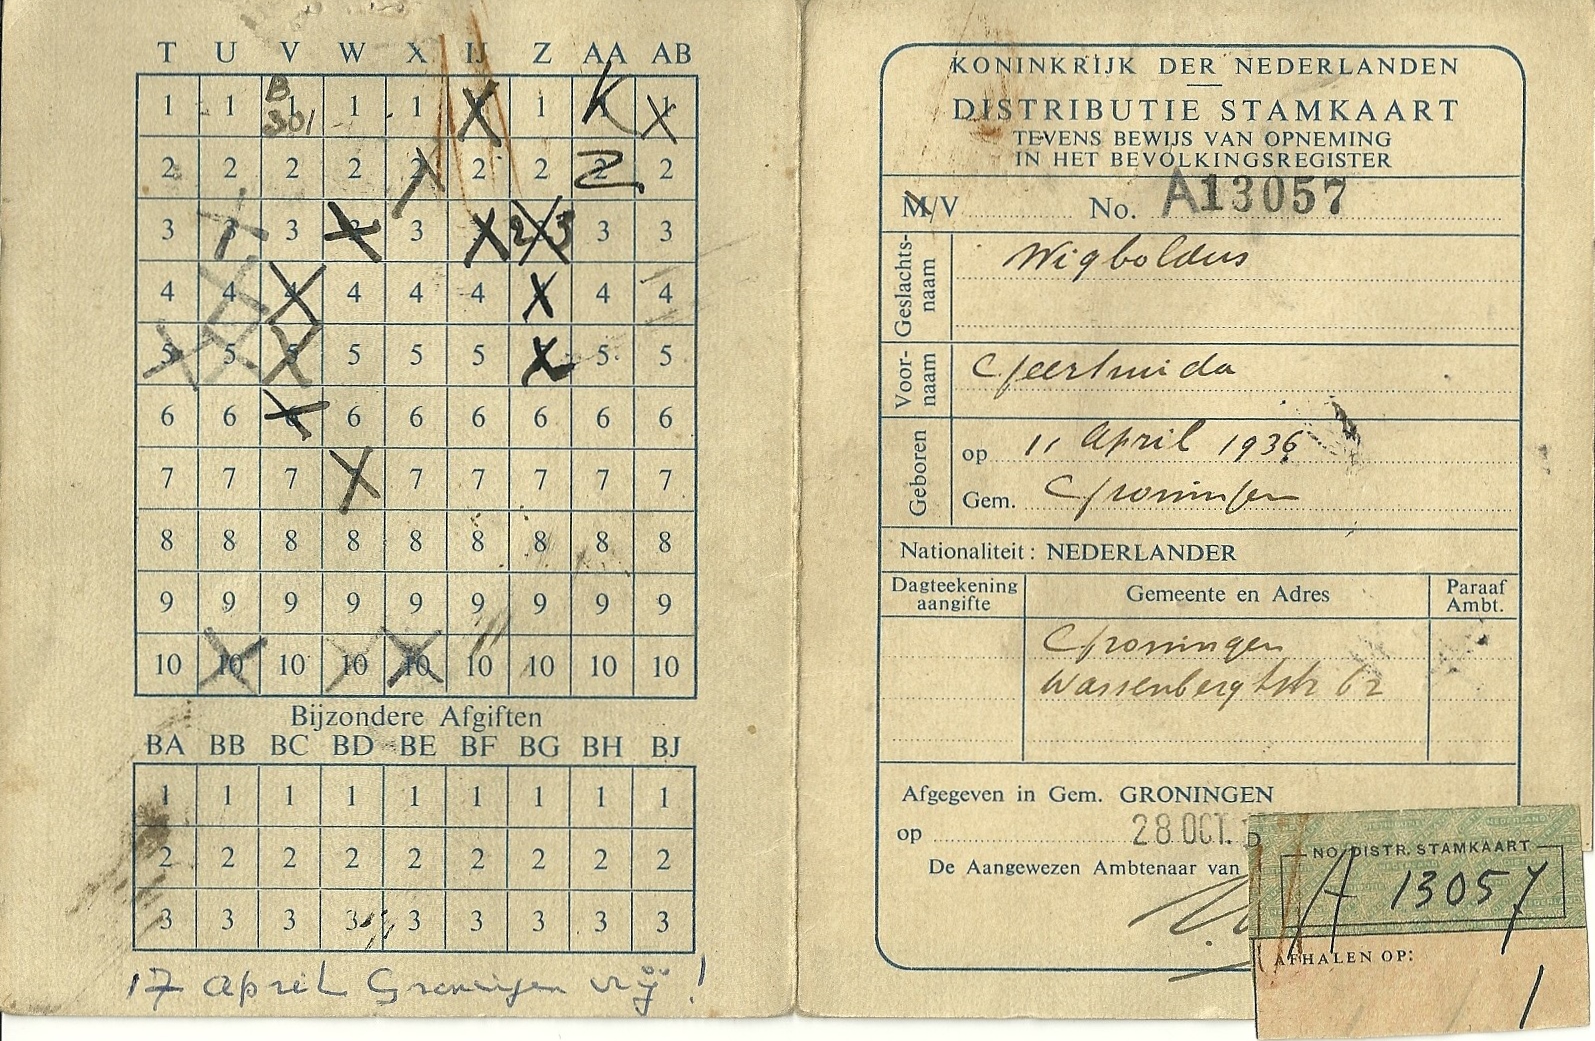 T U V W X IJ Z AA AB
1 1 1 1 1 1 1 1 1
B
301
K
2 2 2 2 2 2 2 2 2
Z
3 3 3 3 3 3 2/3 3 3
4 4 4 4 4 4 4 4 4
5 5 5 5 5 5 5 5 5
6 6 6 6 6 6 6 6 6
7 7 7 7 7 7 7 7 7
8 8 8 8 8 8 8 8 8
9 9 9 9 9 9 9 9 9
10 10 10 10 10 10 10 10 10
Bijzondere Afgiften
BA BB BC BD BE BF BG BH BJ
1 1 1 1 1 1 1 1 1
2 2 2 2 2 2 2 2 2
3 3 3 3 3 3 3 3 3
17 april Groningen vrij!
KONINKRIJK DER NEDERLANDEN
DISTRIBUTIE STAMKAART
TEVENS BEWIJS VAN OPNEMING
IN HET BEVOLKINGSREGISTER
M/V No. A13057
Geslachts-
naam
Wigboldus
Voor-
naam
Geertruida
Geboren
op 11 April 1936
Gem. Groningen
Nationaliteit: NEDERLANDER
Dagteekening
aangifte
Gemeente en Adres
Paraaf
Ambt.
Groningen
Wassenberghstr 62
Afgegeven in Gem. GRONINGEN
op 28 OCT.
De Aangewezen Ambtenaar van
NO. DISTR. STAMKAART
A 13057
AFHALEN OP: